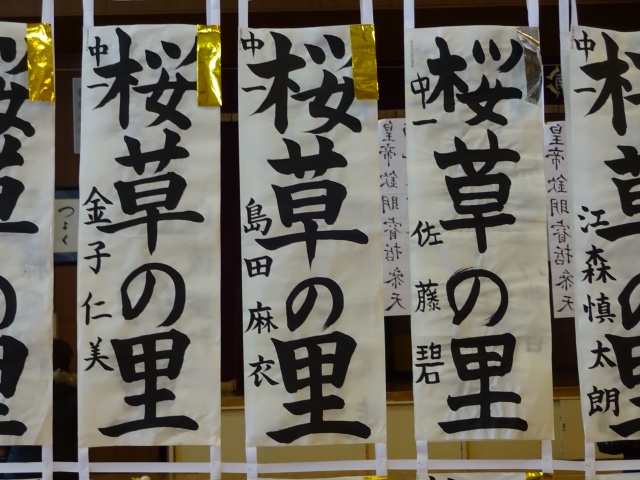 桜草の里
中一
江森慎太朗
桜草の里
中一
佐藤碧
桜草の里
中一
島田麻衣
桜草の里
中一
金子仁美
桜草の里
皇帝欽明睿哲参天
皇帝欽明睿哲参天
つよく